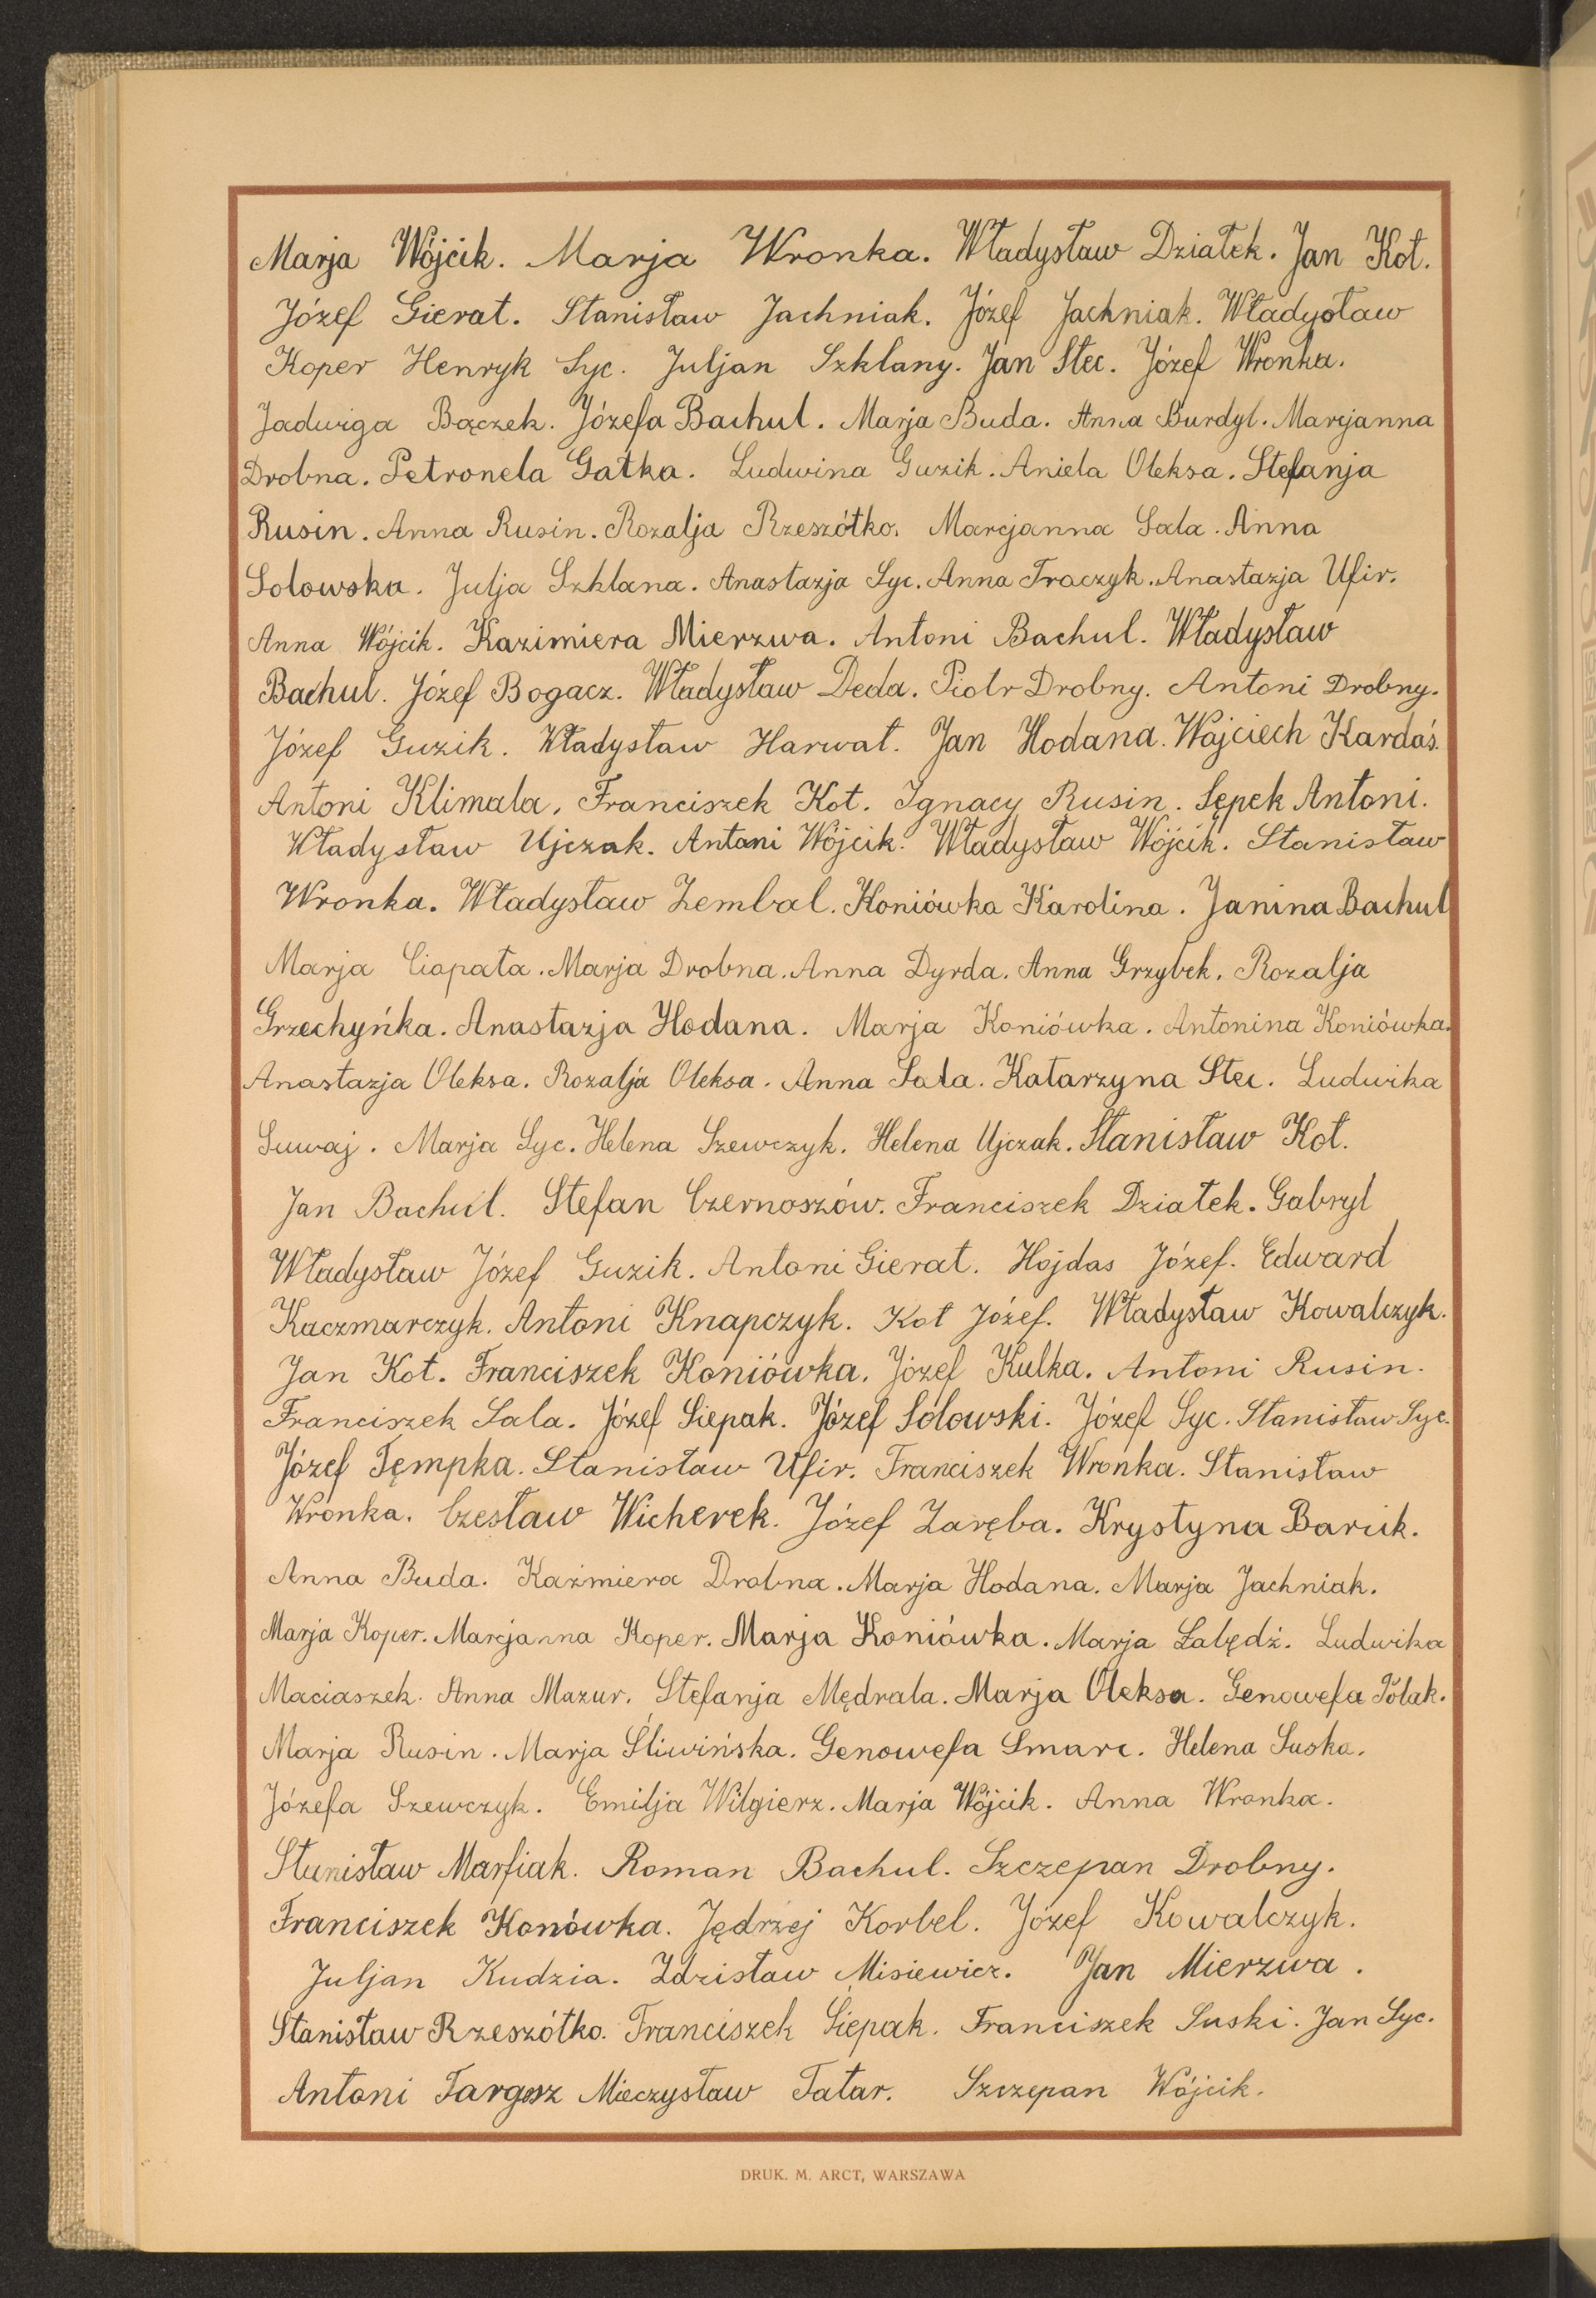 Marja Wójcik. Marja Wronka. Władysław Działek. Jan Kot.
Józef Gierat. Stanisław Jachniak. Józef Jachniak. Władysław
Koper Henryk Syc. Juljan Szklany. Jan Stec. Józef Wronka.
Jadwiga Bączek. Józefa Bachul. Marja Buda. Anna Burdyl. Marcjanna
Drobna. Petronela Gałka. Ludwina Guzik. Aniela Oleksa. Stefanja
Rusin. Anna Rusin. Rozalja Rzeszótko. Marcjanna Sala. Anna
Solowska. Julja Szklana. Anastazja Syc. Anna Traczyk. Anastazja Ufir.
Anna Wójcik. Kazimiera Mierzwa. Antoni Bachul. Władysław
Bachul. Józef Bogacz. Władysław Deda. Piotr Drobny. Antoni Drobny.
Józef Guzik. Władysław Harwat. Jan Hodana. Wojciech Kardaś.
Antoni Klimala. Franciszek Kot. Ignacy Rusin. Sępek Antoni.
Władysław Ujczak. Antoni Wójcik. Władysław Wójcik. Stanisław
Wronka. Władysław Zembal. Koniówka Karolina. Janina Bachul
Marja Ciapała. Marja Drobna. Anna Dyrda. Anna Grzybek. Rozalja
Grzechyńka. Anastazja Hodana. Marja Koniówka. Antonina Koniówka.
Anastazja Oleksa. Rozalja Oleksa. Anna Sala. Katarzyna Stec. Ludwika
Suwaj. Marja Syc. Helena Szewczyk. Helena Ujczak. Stanisław Kot.
Jan Bachul. Stefan Czernoszów. Franciszek Działek. Gabryl
Władysław Józef Guzik. Antoni Gierat. Hojdas Józef. Edward
Kaczmarczyk. Antoni Knapczyk. Kot Józef. Władysław Kowalczyk.
Jan Kot. Franciszek Koniówka. Józef Kulka. Antoni Rusin.
Franciszek Sala. Józef Siepak. Józef Sólowski. Józef Syc. Stanisław Syc.
Józef Tempka. Stanisław Ufir. Franciszek Wronka. Stanisław
Wronka. Czesław Wicherek. Józef Zaręba. Krystyna Barcik.
Anna Buda. Kaźmiera Drobna. Marja Hodana. Marja Jachniak.
Marja Koper. Marcjanna Koper. Marja Koniówka. Marja Łabędź. Ludwika
Maciaszek. Anna Mazur. Stefanja Mędrala. Marja Oleksa. Genowefa Polak.
Marja Rusin. Marja Śliwińska. Genowefa Smarc. Helena Suska.
Józefa Szewczyk. Emilja Wilgierz. Marja Wójcik. Anna Wronka.
Stanisław Marfiak. Roman Bachul. Szczepan Drobny.
Franciszek Konówka. Jędrzej Korbel. Józef Kowalczyk.
Juljan Kudzia. Zdzisław Misiewicz. Jan Mierzwa.
Stanisław Rzeszótko. Franciszek Siepak. Franciszek Suski. Jan Syc.
Antoni Targosz Mieczysław Tatar. Szczepan Wójcik.
DRUK. M. ARCT, WARSZAWA